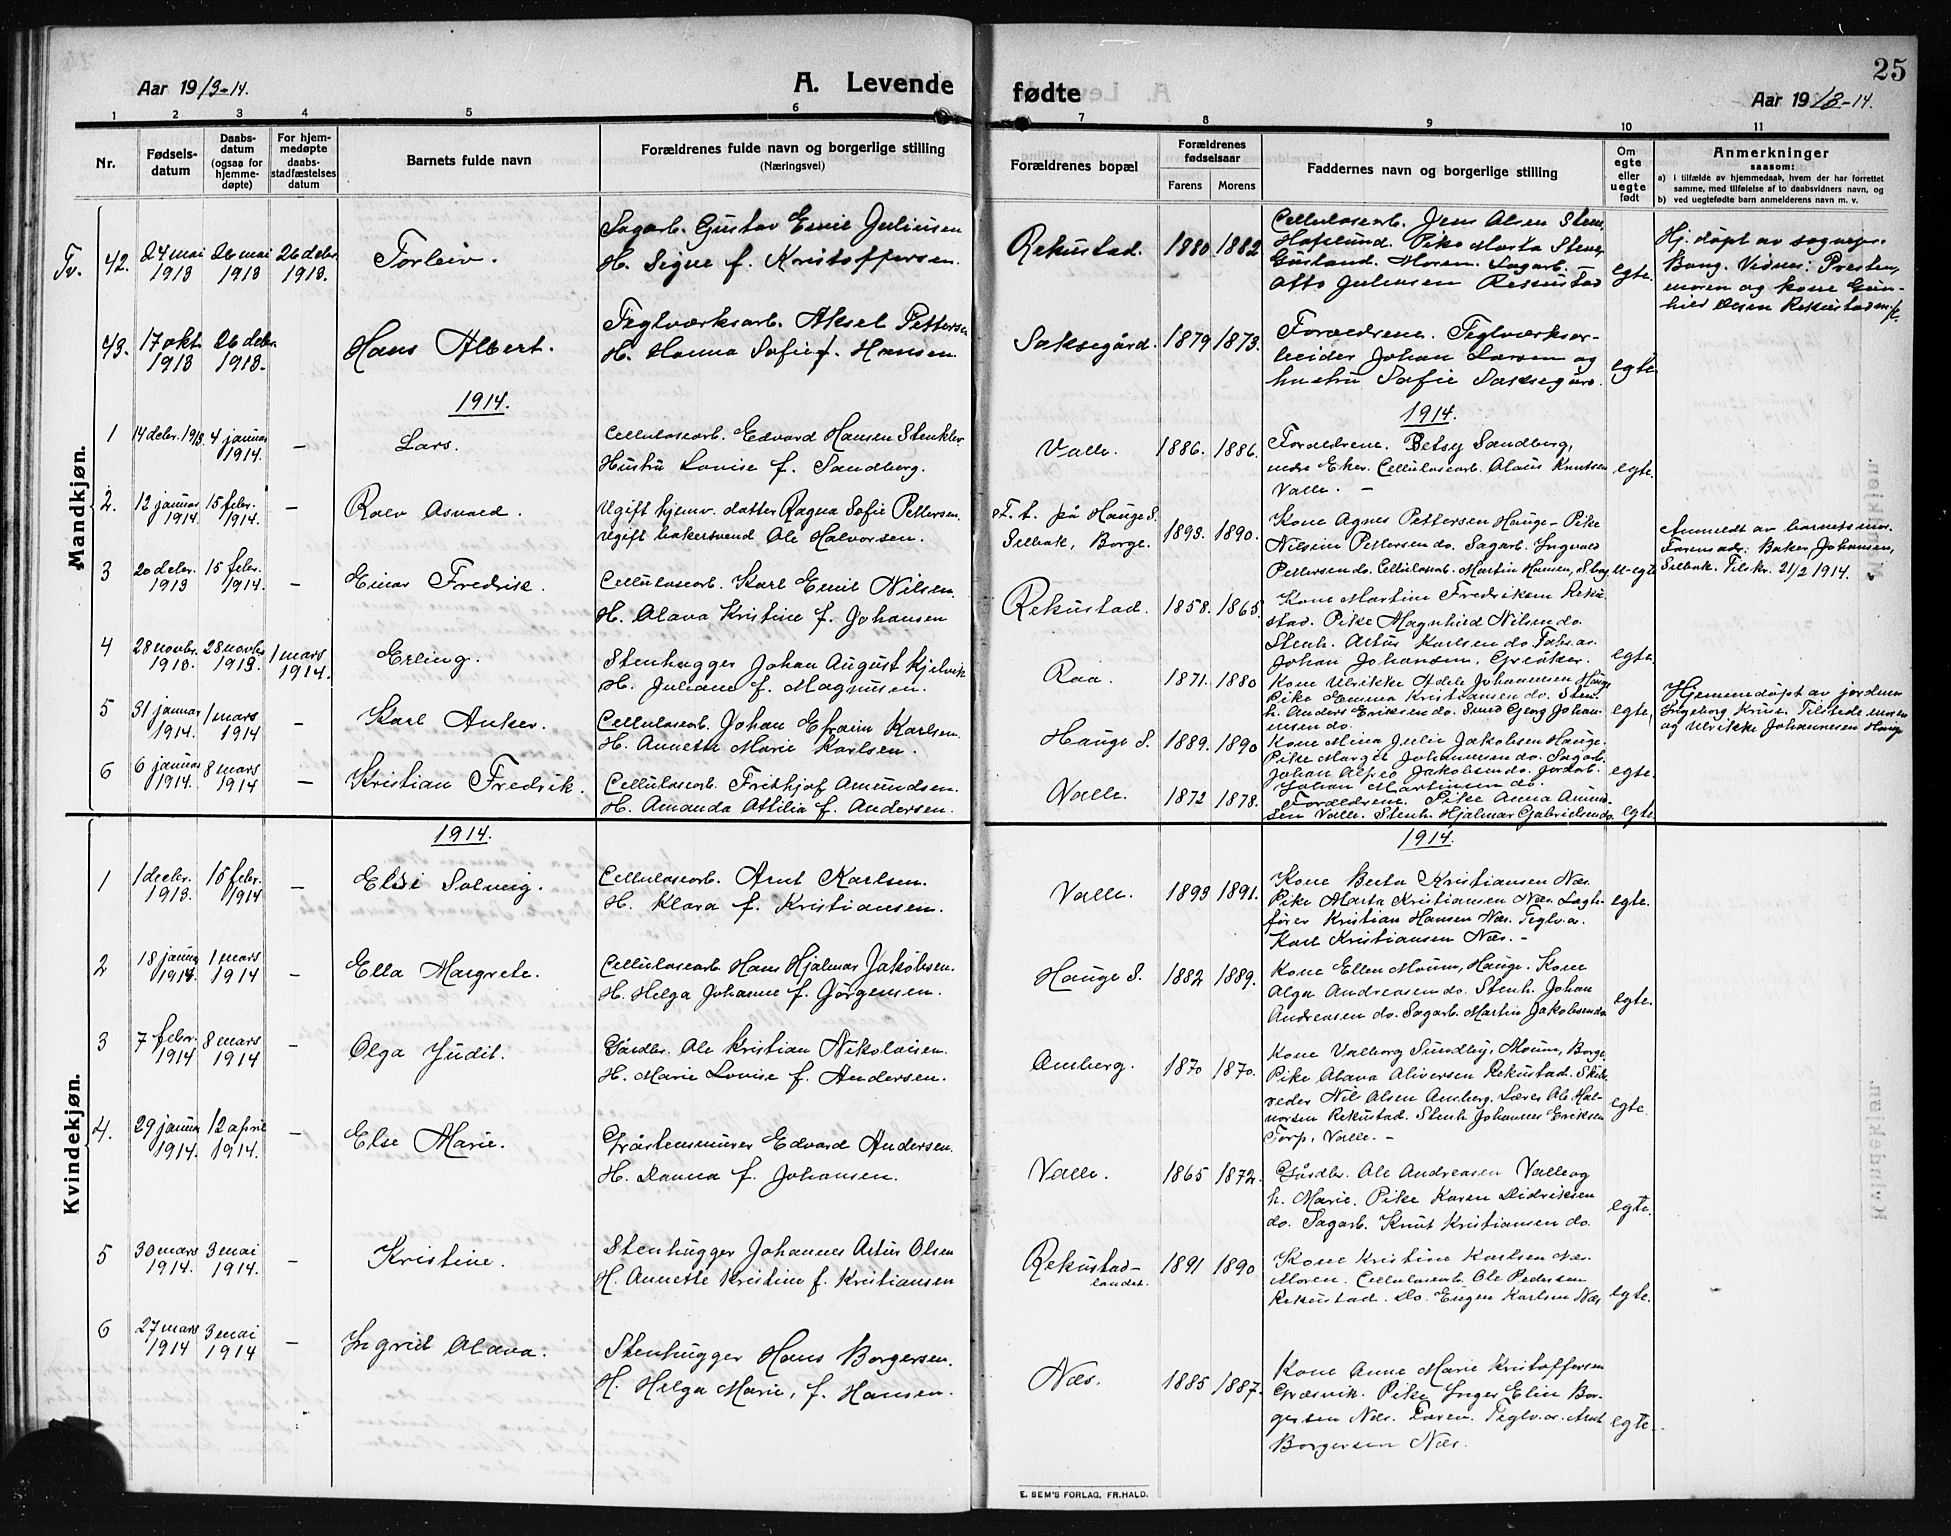 25
Aar 1913-14.
A. Levende
fødte
Aar 1913-14.
1 2 3 4 5 6 7 8 9 10 11
Nr.
Fødsels-
datum
Daabs-
datum
(ogsaa for
hjemme-
døpte)
For hjem-
medøpte
daabs-
stadfæstelses
datum
Barnets fulde navn
Forældrenes fulde navn og borgerlige stilling
(Næringsvei)
Forældrenes bopæl
Forældrenes
fødselsaar
Farens Morens
Faddernes navn og borgerlige stilling
Om
egte
eller
uegte
født
Anmerkninger
saasom:
a) i tilfælde av hjemmedaab, hvem der har forrettet
samme, med tilføielse af to daabsvidners navn, og
b) ved uegtefødte barn anmelderens navn m. v.
Mandkjøn.
Tv. 42. 24 mai 1913 26 mai 1913 26 debr 1913. Torleiv.
Sagarb. Gustav Emil Juliusen
H. Signe f. Kristoffersen.
Rekustad. 1880 1882
Cellulosearb. Jens Olsen Stene,
Hafslund. Pike Marta Stene,
Moren. Sagarb.
Otto Juliusen Rekustad
egte.
Hj. døpt av sognepr.
Bang. Vidner: Presten,
moren og kone Gun-
hild Olsen Rekustad
43. 17 okt. 1913 26 debr. 1913. Hans Albert.
Teglverksarb. Aksel Pettersen
H. Hanna Sofie f. Hansen.
Saksegård. 1879 1873.
Forældrene. Teglverksar-
beider Johan Larsen og
hustru Sofie Saksegård.
egte.
1914.
1914.
1 14 debr. 1913. 4 januar 1914. — Lars.
Cellulosearb. Edvard Hansen
Hustru Lovise f. Sandberg.
Valle. 1886. 1886.
Forældrene. Betsy Sandberg,
nedre Eker. Cellulosearb. Olaus Knutsen
Valle. —
egte.
2. 12 januar 1914. 15 febr. 1914. — Rolv Osvald.
Ugift hjemv. datter Ragna Sofie Pettersen.
Ugift bakersvend Ole Halvorsen.
F. t. på Hauge S.
Selbak, Borge. 1893. 1890.
Kone Agnes Pettersen Hauge - Pike
Nilsine Pettersen do. Sagarb. Ingvald
Pettersen do. Cellulosearb. Martin Hansen,
u-egte
Anmeldt av barnets mor.
Farens adr: Baker Johansen,
Selbak. Tilskr. 21/2 1914.
3 20 debr. 1913 15 febr. 1914. — Einar Fredrik.
Cellulosearb. Karl Emil Nilsen.
H. Olava Kristine f. Johansen
Rekustad. 1858. 1865
Kone Martine Fredriksen Reku-
stad. Pike Magnhild Nilsen do.
Stenh. Artur Karlsen do. Fabr. ar.
Johan Johansen, Greåker.
egte.
4 28 novbr. 1913. 28 novbr. 1913. 1 mars 1914. Erling.
Stenhugger Johan August Kjelvik
H. Juliane f. Magnusen.
Raa. 1871. 1880
Kone Ulrikke Adele Johannesen Hauge
Pike Emma Kristiansen do. Sten-
h. Anders Eriksen do. Smed Georg Johan-
nesen do.
egte.
Hjemmedøpt av jordmor
Ingeborg Krust. Tilstede moren
og Ulrikke Johannesen Hauge
5 31 januar 1914. 1 mars 1914 — Karl Anker.
Cellulosearb. Johan Efraim Karlsen.
H. Annette Marie Karlsen.
Hauge S. 1889. 1890
Kone Mina Julie Jakobsen Hauge.
Pike Margit Johannesen do. Sagarb.
Johan Alfred Jakobsen do. Jordarb.
Johan Martinsen do.
egte.
6 6 januar 1914. 8 mars 1914 — Kristian Fredrik.
Cellulosearb. Frithjof Amundsen.
H. Amanda Attilia f. Andersen.
Valle. 1872 1878.
Forældrene. Pike Anna Amund-
sen Valle. Stenh. Hjalmar Gabrielsen do.
egte.
Kvindekjøn.
1914.
1914.
1 1 decbr. 1913. 15 febr. 1914 — Elsi Solveig.
Cellulosearb. Arnt Karlsen.
H. Klara f. Kristiansen.
Valle. 1893 1891.
Kone Berta Kristiansen Næs.
Pike Marta Kristiansen Næs. Lagte-
fører Kristian Hansen Næs. Teglv. ar.
Karl Kristiansen Næs. —
egte.
2 18 januar 1914. 1 mars 1914 — Ella Margrete.
Cellulosearb. Hans Hjalmar Jakobsen.
H. Helga Johanne f. Jørgensen.
Hauge S. 1882 1889.
Kone Ellen Moum, Hauge. Kone
Olga Andreasen do. Stenh. Johan
Andreasen do. Sagarb. Martin Jakobsen do
egte.
3 7 febr. 1914 8 mars 1914 — Olga Judit.
Gårdbr. Ole Kristian Nikolaisen.
H. Marie Lovise f. Andersen.
Omberg. 1870 1870.
Kone Valborg Sundby, Moum, Borge
Pike Olava Oliversen Rekustad. Skibs-
reder Nils Olsen Omberg. Lærer Ole Hal-
vorsen Rekustad. Stenh. Johannes Eriksen
Torp, Valle. —
egte.
4. 29 januar 1914. 12 april 1914. — Else Marie.
Gråstensmurer Edvard Andersen.
H. Danna f. Johansen.
Valle. 1865 1872.
Gårdbr. Ole Andreasen Valle og
h. Marie. Pike Karen Didriksen
do. Sagarb. Knut Kristiansen do.
egte.
5 30 mars 1914. 3 mai 1914. — Kristine.
Stenhugger Johannes Artur Olsen
H. Annette Kristine f. Kristiansen
Rekustad-
landet. 1891 1890
Kone Kristine Karlsen Næs.
Moren. Cellulosearb. Ole Pedersen
Rekustad. Do. Eugen Karlsen Næs
egte.
6 27 mars 1914 3 mai 1914 — Ingrid Olava.
Stenhugger Hans Borgersen.
H. Helga Marie, f. Hansen.
Næs. 1885 1887.
Kone Anne Marie Kristoffersen
Græsvik. Pike Inger Elin Bor-
gersen Næs. Faren. Teglv. ar. Arnt
Borgersen Næs.
egte.
E. SEM'S FORLAG, FR.HALD.